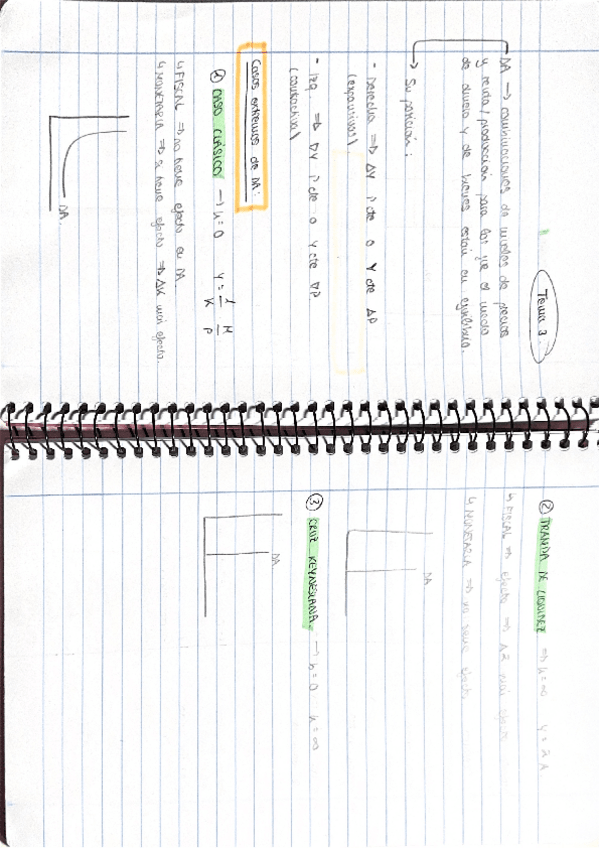 Tema 3.
DA → combinaciones de niveles de precios
y renta/producción para los que el mercado
de dinero y de bienes están en equilibrio.
→ Su posición:
- Derecha ⇒ ΔY P de o Y de ΔP
(expansivas)
- Izq. ⇒ ∇Y P de o Y de ∇P
(contractiva)
Casos extremos de DA:
① CASO CLÁSICO → h=0 Y = 1/K M/P
↳ FISCAL ⇒ no tiene efecto en
↳ MONETARIA ⇒ si tiene efecto ⇒ ∇K más efecto.
DA.
② TRAMPA DE LIQUIDEZ ⇒ h=∞ Y = α A
↳ FISCAL ⇒ efecto ⇒ Δα más efecto
↳ MONETARIA ⇒ no tiene efecto
DA
③ CRUZ KEYNESIANA. → b=0 h=∞
DA.